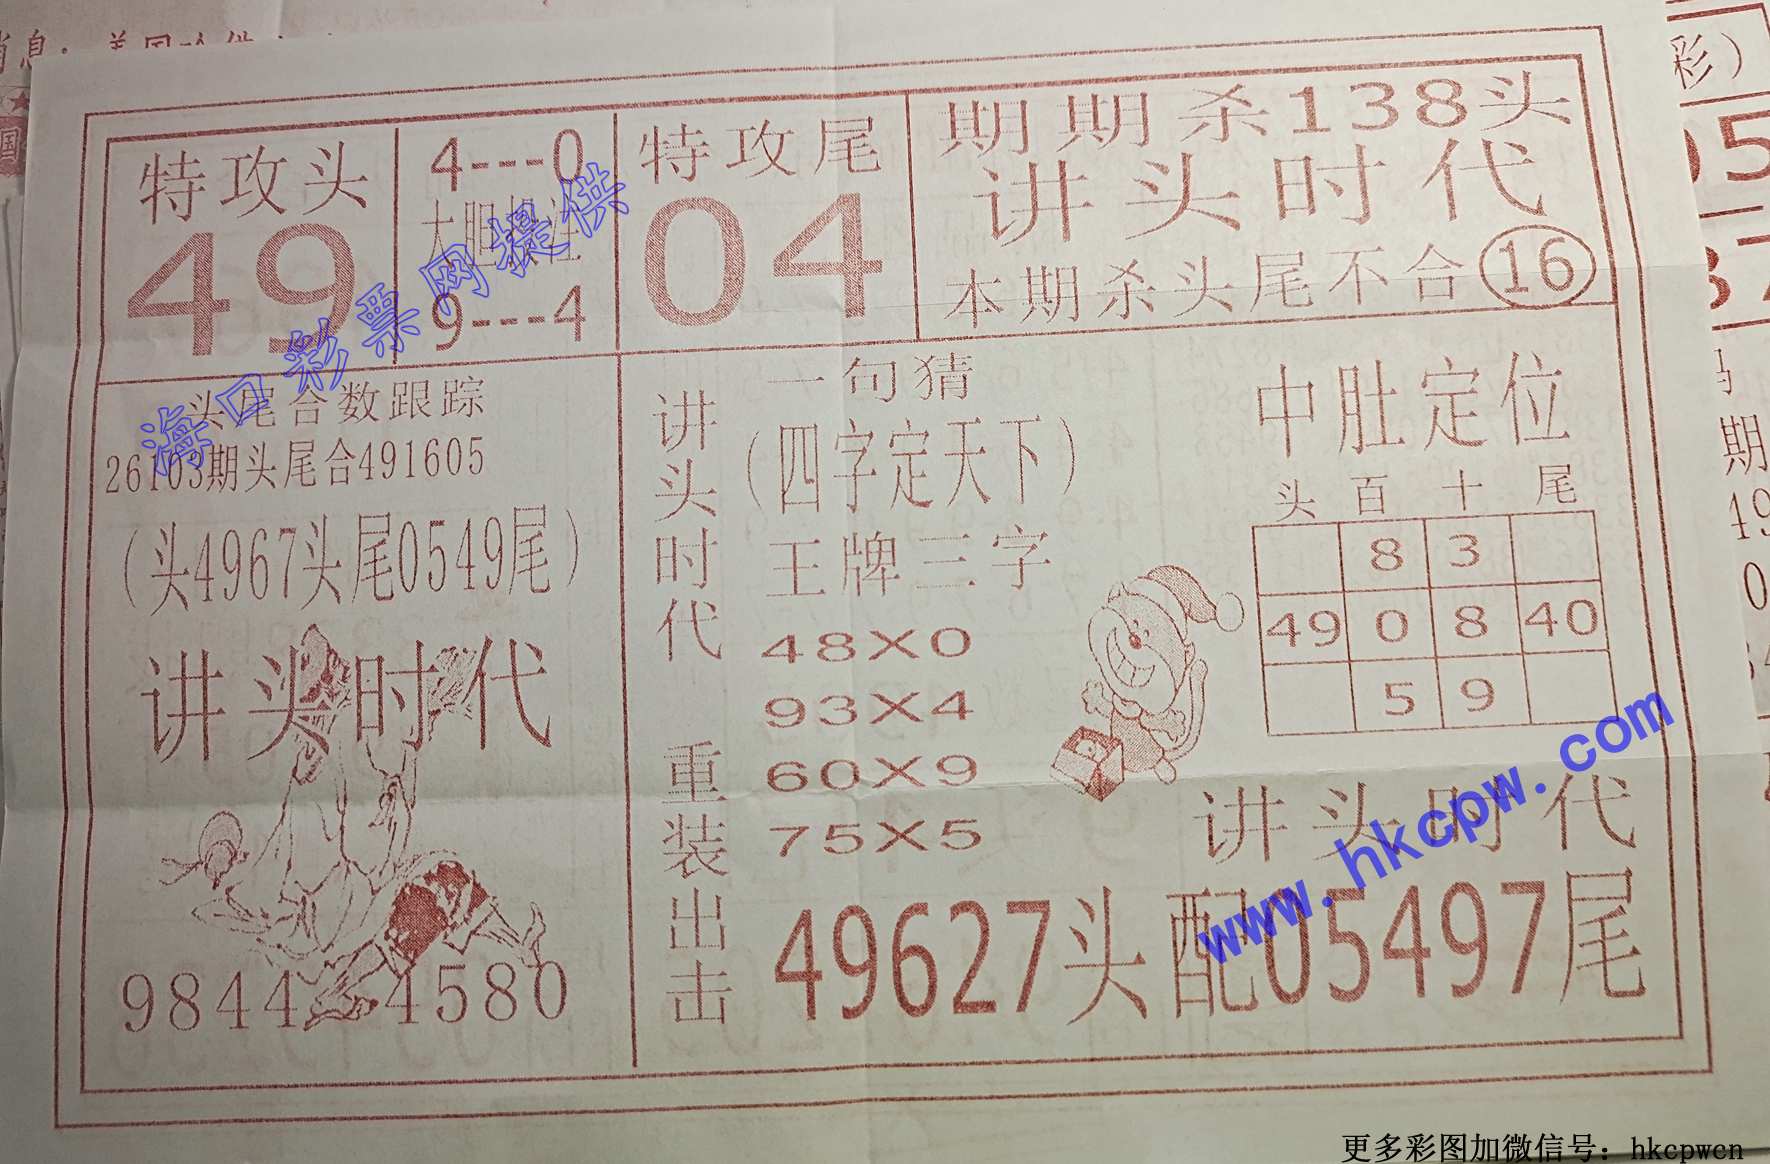 特攻头
49
4---0
大胆投注
9---4
特攻尾
04
期期杀138头
讲头时代
本期杀头尾不合16
头尾合数跟踪
26103期头尾合491605
(头4967头尾0549尾)
讲头时代
9844 4580
讲头时代 重装出击
一句猜
(四字定天下)
王牌三字
48X0
93X4
60X9
75X5
中肚定位
头 百 十 尾
8 3
49 0 8 40
5 9
讲头时代
49627头配05497尾
海口彩票网提供
www.hkcpw.com
更多彩图加微信号：hkcpwcn
彩）
期